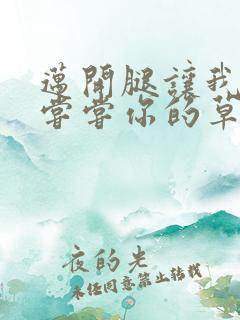 邁開腿讓我
嘗嘗你的草
夜的光
未经同意禁止转载